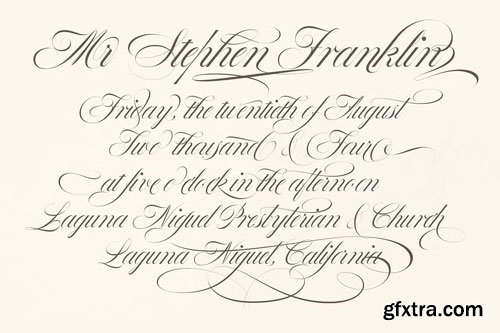 Mr Stephen Franklin
Friday, the twentieth of August
Two thousand & Four
at five o'clock in the afternoon
Laguna Niguel Presbyterian & Church
Laguna Niguel, California
gfxtra.com